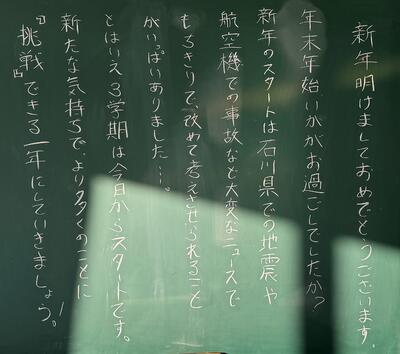 新年明けましておめでとうございます。
年末年始いかがお過ごしでしたか?
新年のスタートは石川県での地震や
航空機での事故など大変なニュースで
もちきりで、改めて考えさせられること
がいっぱいありました…。
とはいえ3学期は今日からスタートです。
新たな気持ちで、より多くのことに
『挑戦』できる一年にしていきましょう。!